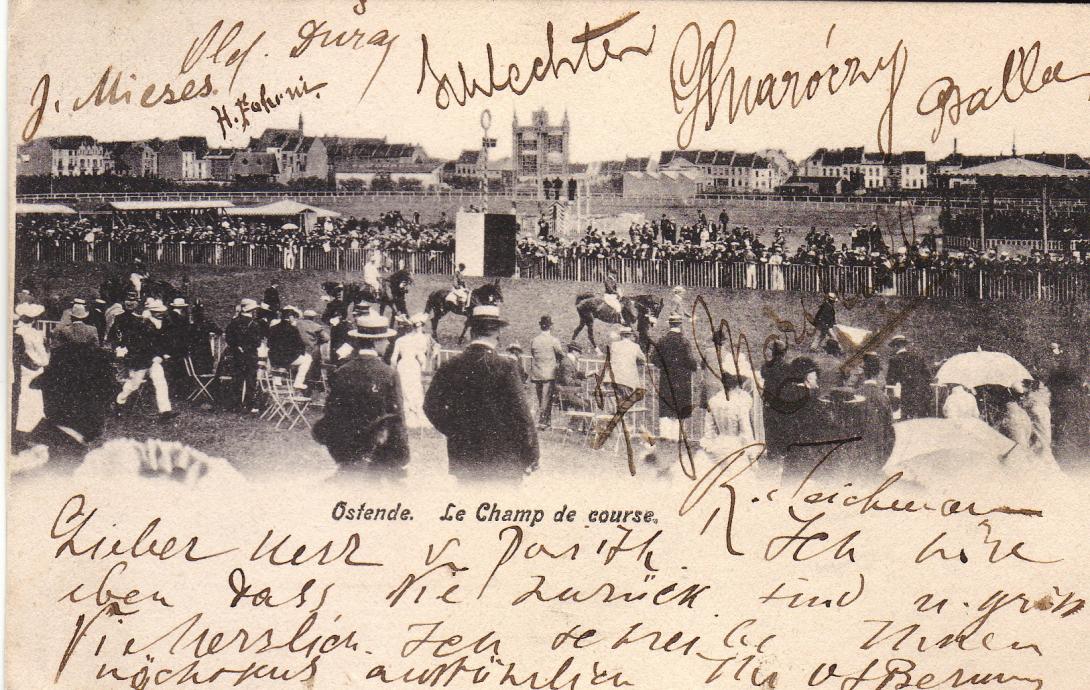 Old. Duras
J. Mieses.
H. Fahrni.
Schlechter
G Maróczy
Balla
F J Marshall
R. Teichmann
Ostende. Le Champ de course.
Lieber Herr v. Ich höre
eben dass Sie zurück sind u. grüße
Sie herzlich. Ich schreibe Ihnen
nächstens ausführlich Ihr